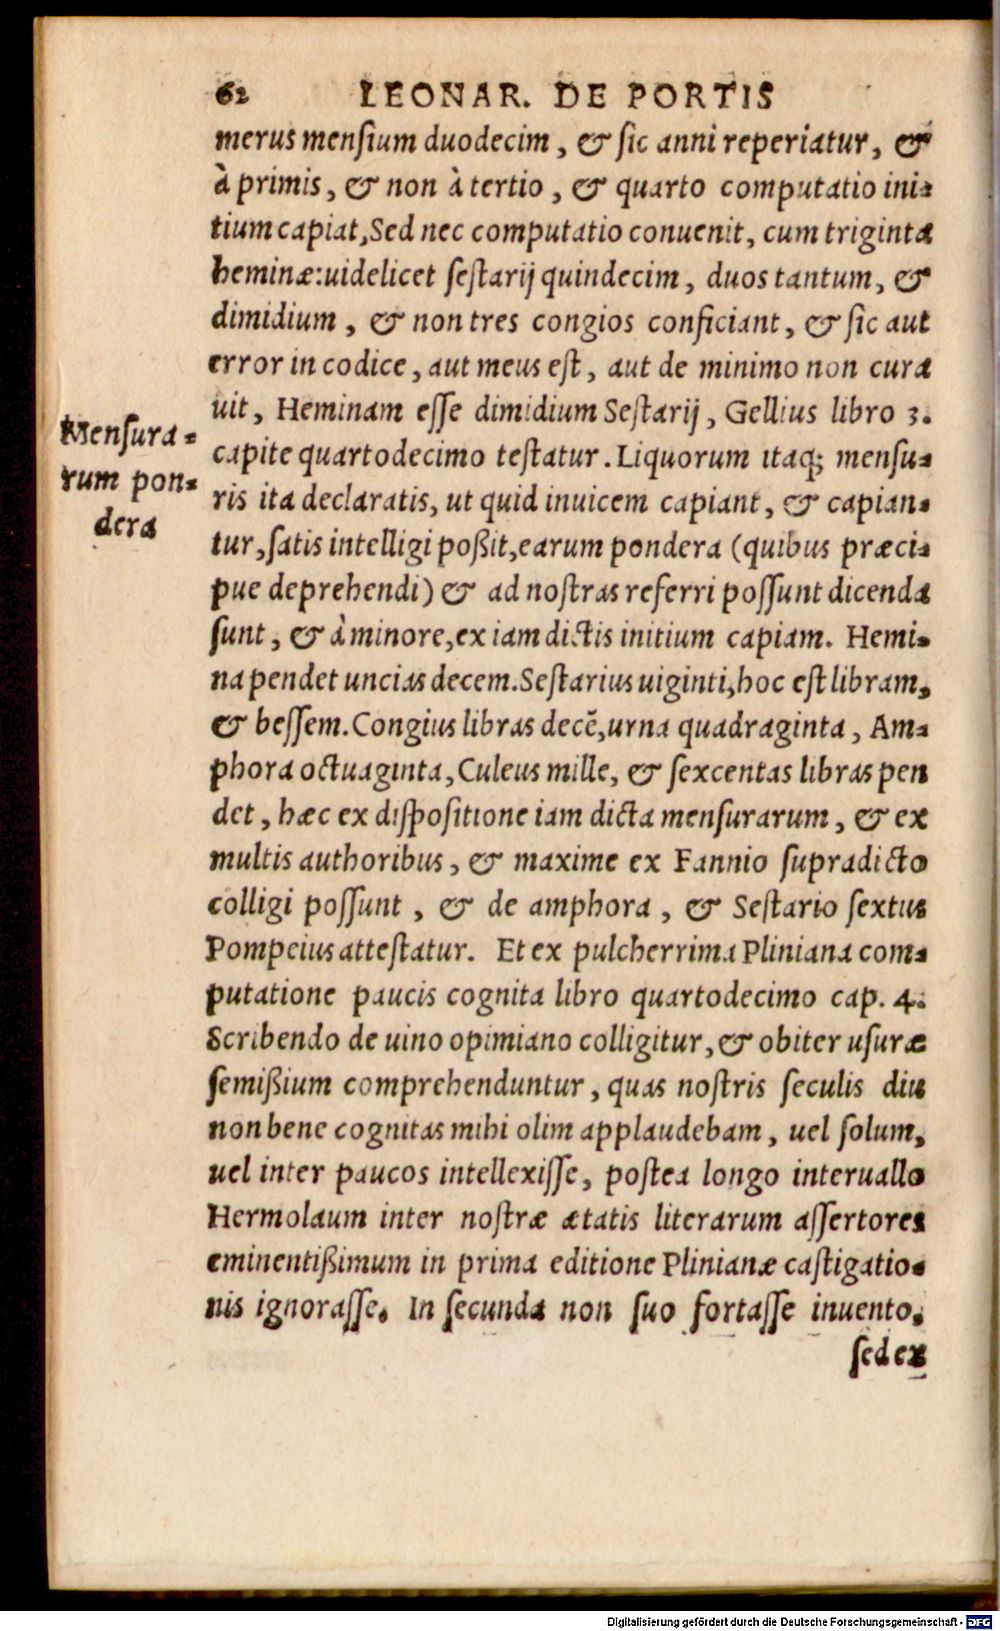 62 LEONAR. DE PORTIS
merus mensium duodecim, & sic anni reperiatur, &
à primis, & non à tertio, & quarto computatio ini-
tium capiat, Sed nec computatio conuenit, cum triginta
heminæ: uidelicet sestarij quindecim, duos tantum, &
dimidium, & non tres congios conficiant, & sic aut
error in codice, aut meus est, aut de minimo non cura
uit, Heminam esse dimidium Sestarij, Gellius libro 3.
capite quartodecimo testatur. Liquorum itaq; mensu-
ris ita declaratis, ut quid inuicem capiant, & capian-
tur, satis intelligi poßit, earum pondera (quibus præci-
pue deprehendi) & ad nostras referri possunt dicenda
sunt, & à minore, ex iam dictis initium capiam. Hemi-
na pendet uncias decem. Sestarius uiginti, hoc est libram,
& bessem. Congius libras decē, urna quadraginta, Am-
phora octuaginta, Culeus mille, & sexcentas libras pen
det, hæc ex dispositione iam dicta mensurarum, & ex
multis authoribus, & maxime ex Fannio supradicto
colligi possunt, & de amphora, & Sestario sextus
Pompeius attestatur. Et ex pulcherrima Pliniana com-
putatione paucis cognita libro quartodecimo cap. 4.
Scribendo de uino opimiano colligitur, & obiter usuræ
semißium comprehenduntur, quas nostris seculis diu
non bene cognitas mihi olim applaudebam, uel solum,
uel inter paucos intellexisse, postea longo interuallo
Hermolaum inter nostræ ætatis literarum assertores
eminentißimum in prima editione Plinianæ castigatio-
nis ignorasse. In secunda non suo fortasse inuento,
sed ex
Mensura-
rum pon-
dera
Digitalisierung gefördert durch die Deutsche Forschungsgemeinschaft - DFG